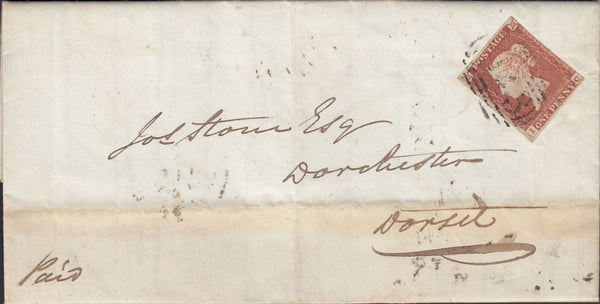 POSTAGE
ONE PENNY
Jos Stone Esq
Dorchester
Dorset
Paid